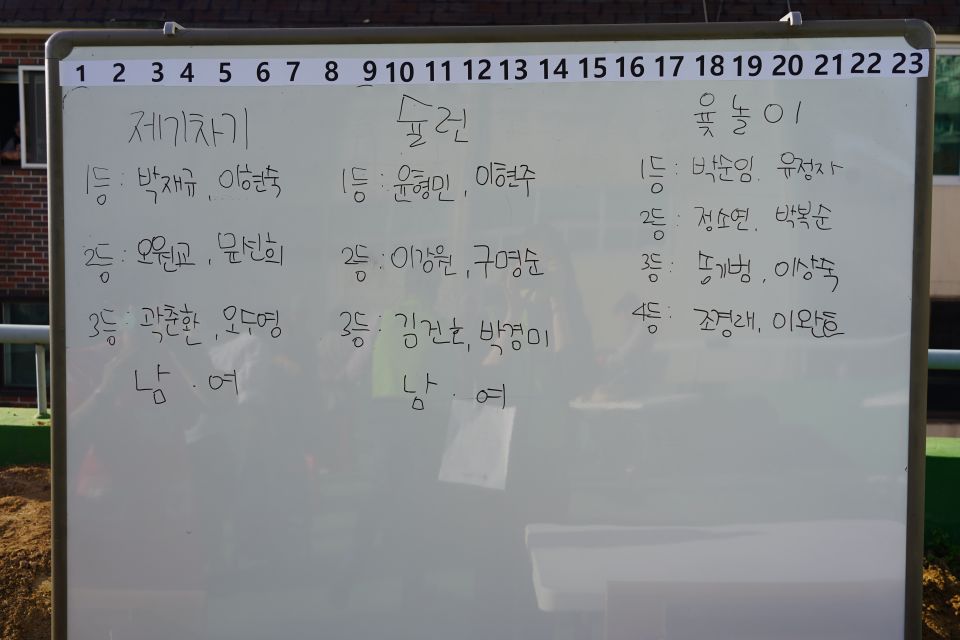 1 2 3 4 5 6 7 8 9 10 11 12 13 14 15 16 17 18 19 20 21 22 23
제기차기
1등 : 박재규, 이현숙
2등 : 오원교, 문신희
3등 : 곽준환, 오두영
남 · 여
술런
1등 : 윤형민, 이현주
2등 : 이강원, 구명순
3등 : 김건호, 박경미
남 · 여
윷놀이
1등 : 박순임, 유정자
2등 : 정소연, 박복순
3등 : 송기범, 이상숙
4등 : 조경래, 이완